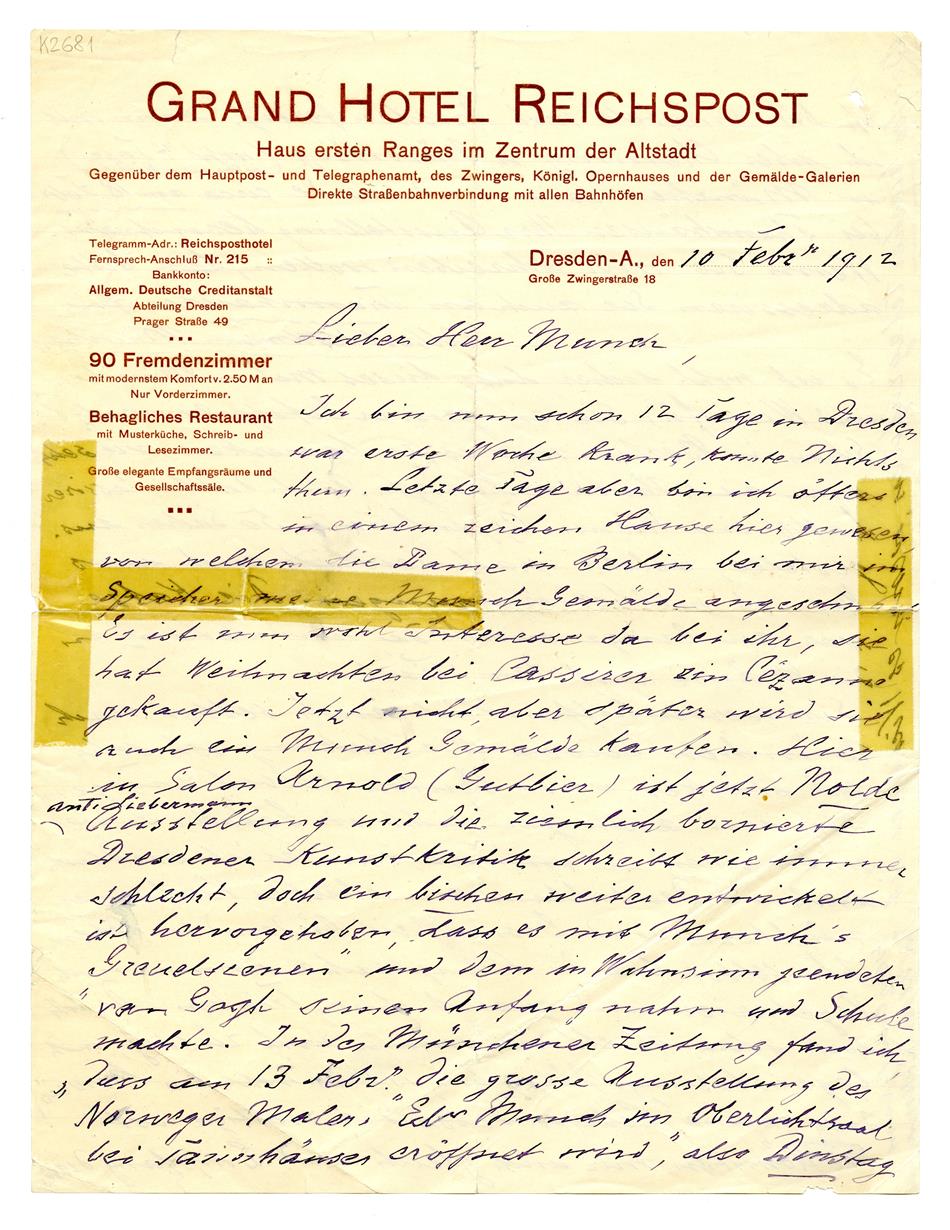 K2681
GRAND HOTEL REICHSPOST
Haus ersten Ranges im Zentrum der Altstadt
Gegenüber dem Hauptpost- und Telegraphenamt, des Zwingers, Königl. Opernhauses und der Gemälde-Galerien
Direkte Straßenbahnverbindung mit allen Bahnhöfen
Telegramm-Adr.: Reichsposthotel
Fernsprech-Anschluß Nr. 215 ::
Bankkonto:
Allgem. Deutsche Creditanstalt
Abteilung Dresden
Prager Straße 49
90 Fremdenzimmer
mit modernstem Komfort v. 2.50 M an
Nur Vorderzimmer.
Behagliches Restaurant
mit Musterküche, Schreib- und
Lesezimmer.
Große elegante Empfangsräume und
Gesellschaftssäle.
Dresden-A., den 10 Febr 1912
Große Zwingerstraße 18
Lieber Herr Munch,
Ich bin nun schon 12 Tage in Dresden
war erste Woche Krank, konnte Nichts
thun. Letzte Tage aber bin ich öfters
in einem reichen Hause hier gewesen,
von welchem die Dame in Berlin bei mir im
Speicher meine Munch Gemälde
Es ist nun wohl Interesse da bei ihr, sie
hat Weihnachten bei Cassirer ein Cézanne
gekauft. Jetzt nicht, aber später wird sie
auch ein Munch Gemälde kaufen. Hier
in Salon Arnold (Gutbier) ist jetzt Nolde
anti Liebermann
Ausstellung und die ziemlich bornierte
Dresdener Kunstkritik schreibt wie immer
schlecht, doch ein bischen weiter entwickelt
ist hervorgehoben, dass es mit Munch's
Greuelscenen" und dem in Wahnsinn geendeten
"van Gogh seinen Anfang nahm und Schule
machte. In der Münchener Zeitung fand ich,
dass am 13 Febr. die grosse Ausstellung des
"Norweger Malers "Edv Munch im Oberlichtsaal
bei Tannhäuser eröffnet wird", also Dinstag